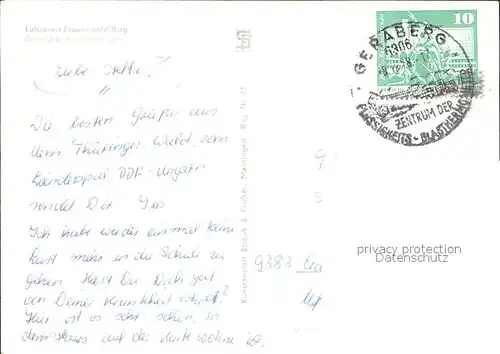 Luftkurort Frauenwald/Rstg
Liebe
Die besten Grüße aus
dem Thüringer Wald, vom
Länderspiel DDR-Ungarn
sendet Dir
Ich habe wieder einmal keine
Lust mehr in die Schule zu
gehen. Hast Du Dich gut
von Deiner Krankheit erholt?
Hier ist es sehr schön, in
dem Haus auf der Karte wohne ich.
Kunstanstalt Straub & Fischer, Meiningen
10
GERABERG
6306
ZENTRUM DER
FLÜSSIGKEITS-GLASTHERMOMETER
privacy protection
Datenschutz
9383